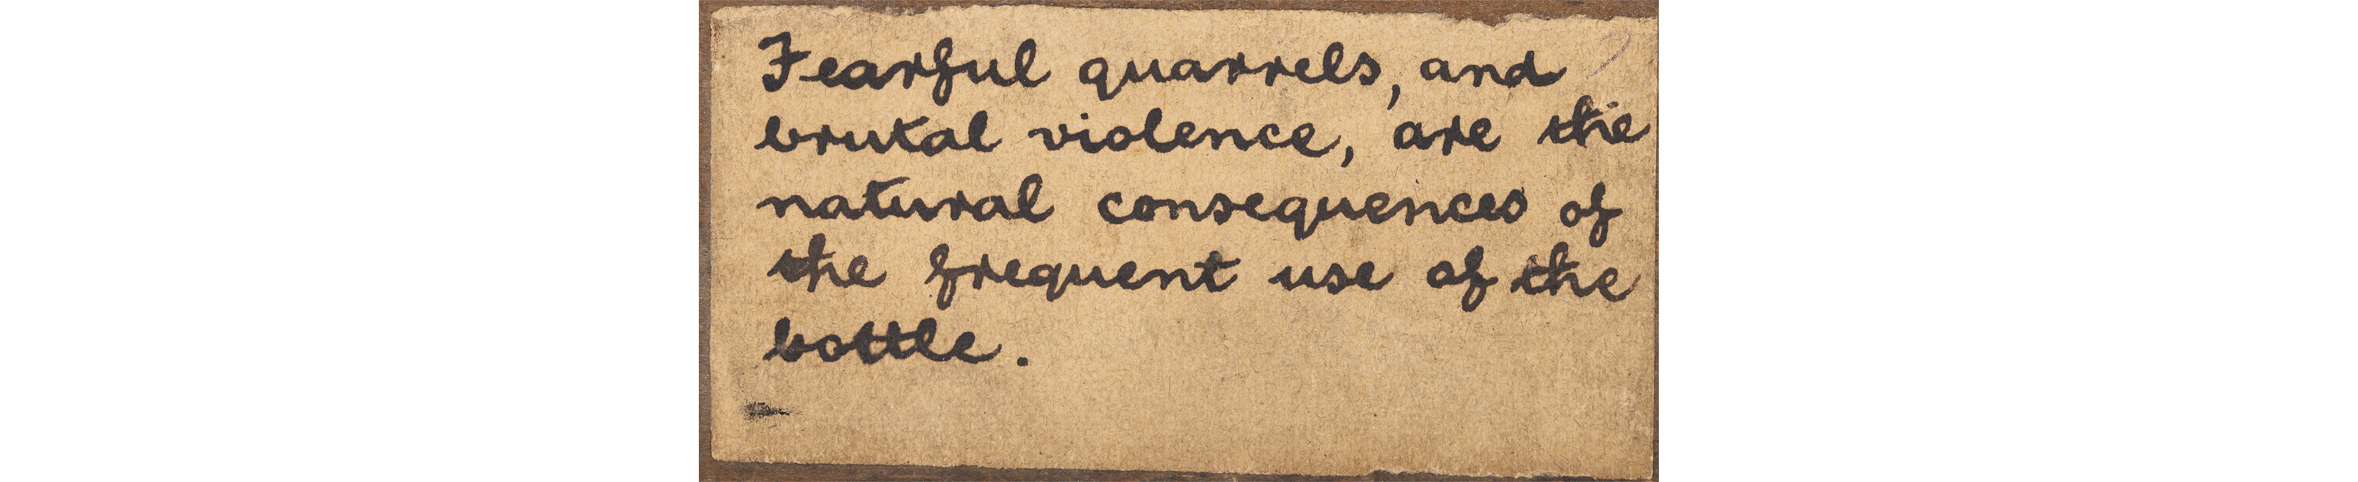 Fearful quarrels, and
brutal violence, are the
natural consequences of
the frequent use of the
bottle.